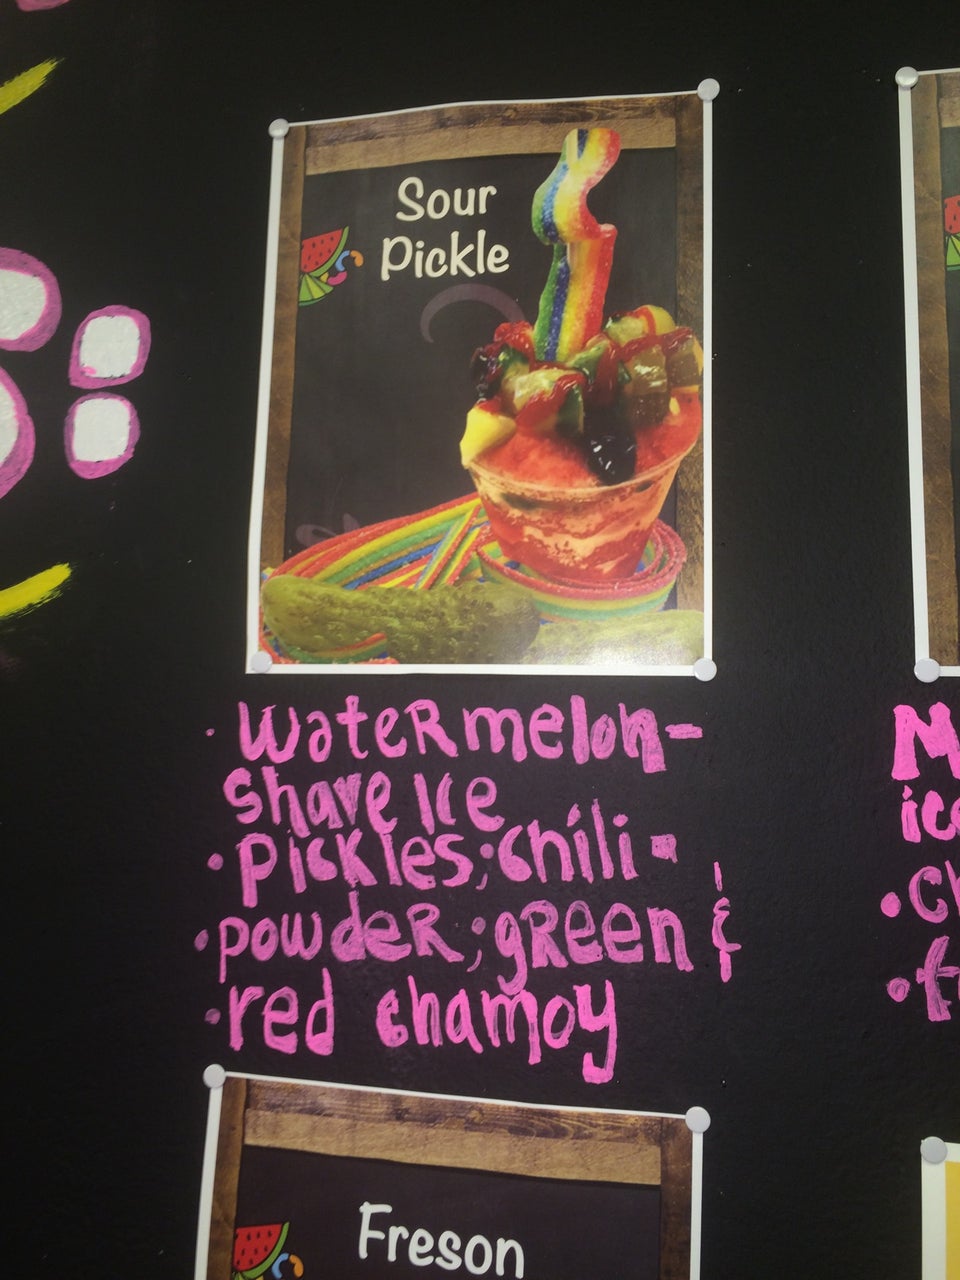 S:
Sour
Pickle
· Watermelon-
Shave Ice
· Pickles; chili-
· powder; green &
· red chamoy
Freson
M
ice
· Ch
· f